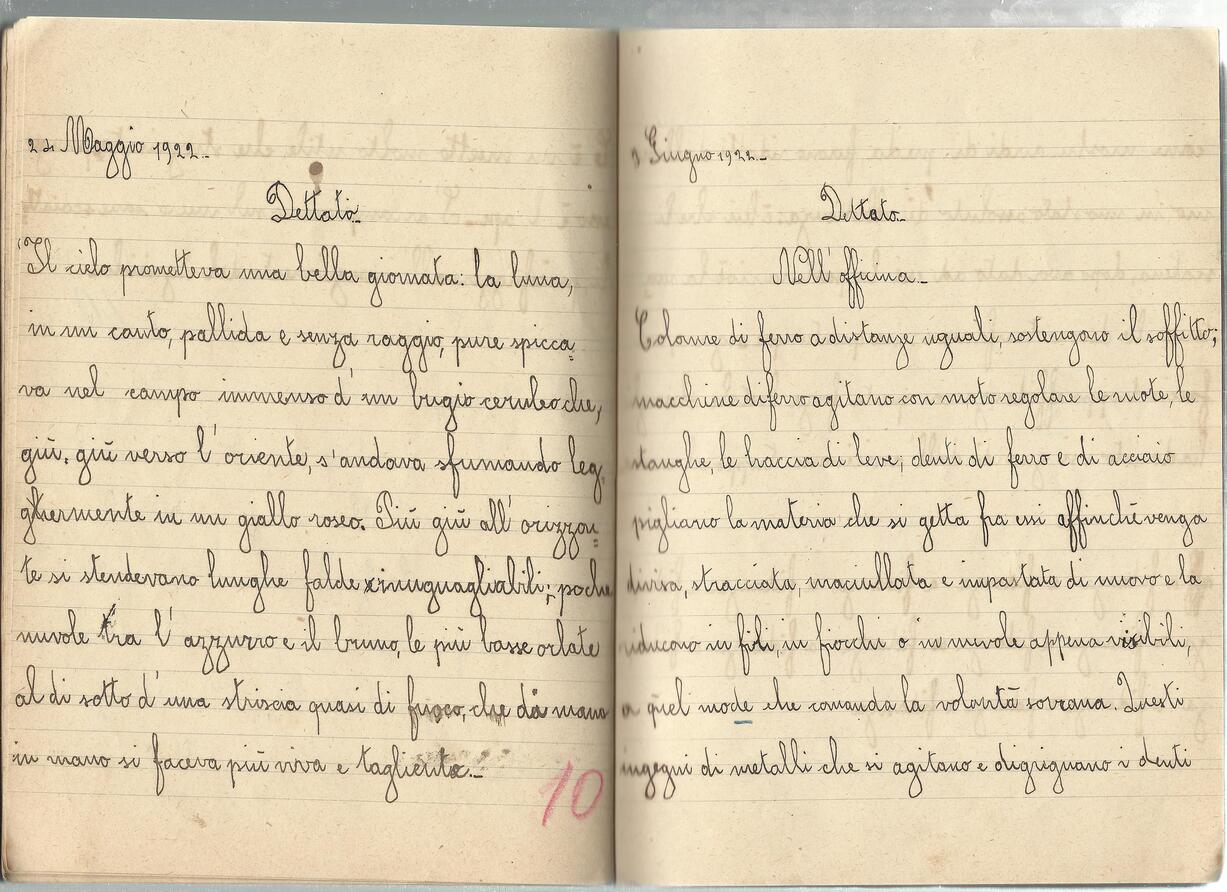 24 Maggio 1922.-
Dettato.-
"Il cielo prometteva una bella giornata: la luna,
in un canto, pallida e senza raggio, pure spicca=
va nel campo immenso d'un bugio ceruleo che,
giù, giù verso l'oriente, s'andava sfumando leg=
ghermente in un giallo roseo. Più giù all'orizzon=
te si stendevano lunghe falde inuguagliabili, poche
nuvole tra l'azzurro e il bruno, le più basse orlate
al di sotto d'una striscia quasi di fuoco, che da mano
in mano si faceva più viva e tagliente.-
10
Giugno 1922.-
Dettato.-
Nell'officina.-
Colonne di ferro a distanze uguali, sostengono il soffitto;
macchine di ferro agitano con moto regolare le ruote, le
stanghe, le braccia di leve; denti di ferro e di acciaio
pigliano la materia che si getta fra essi affinchè venga
divisa, stracciata, maciullata e impastata di nuovo e la
riducono in fili, in fiocchi o in nuvole appena visibili,
a quel mode che comanda la volontà sovrana. Questi
ingegni di metalli che si agitano e digrignano i denti